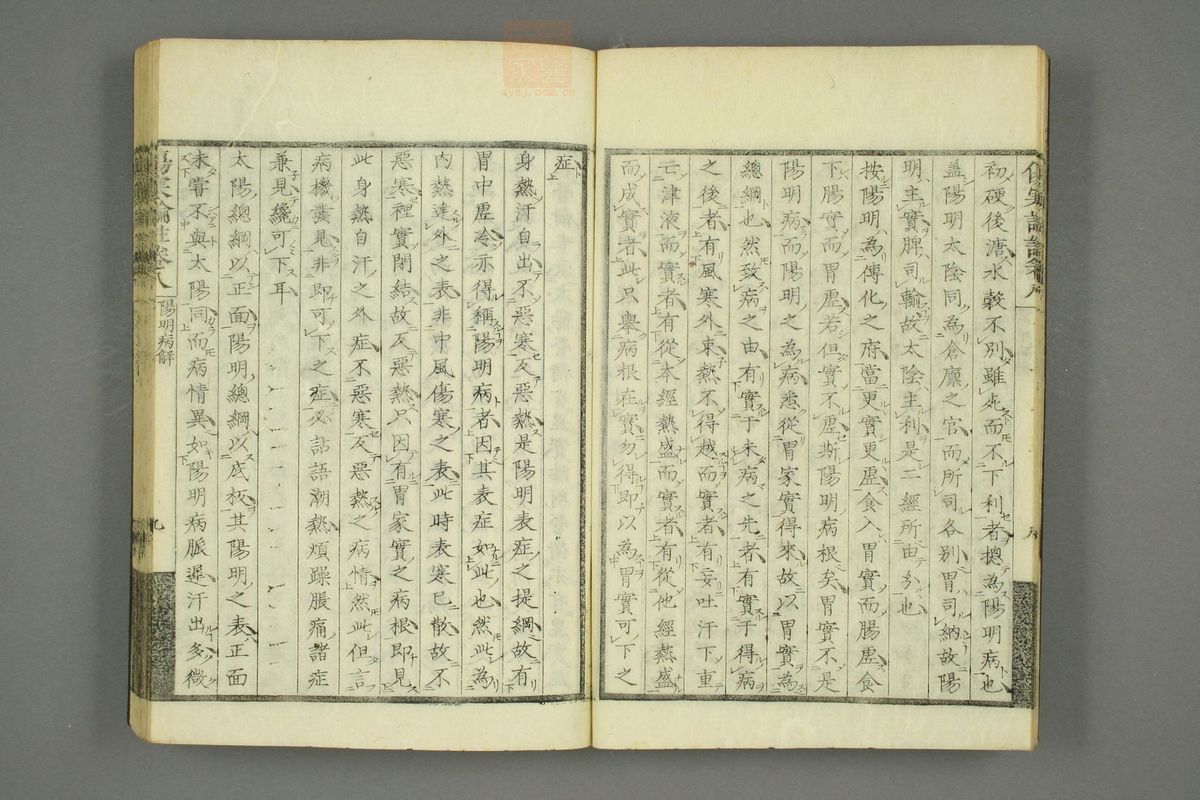 初硬後溏水穀不別雖死而不下利者總為陽明病也
蓋陽明太陰同為倉廩之官而所司各別胃司納故陽
明主實脾司輸故太陰主利是二經所由分也
按陽明為傳化之府當更實更虛食入胃實而腸虛食
下腸實而胃虛若但實不虛斯陽明病根矣胃實不是
陽明病而陽明之為病悉從胃家實得來故以胃實為
總綱也然致病之由有實于未病之先者有實于得病
之後者有風寒外束熱不得越而實者有妄吐汗下重
亡津液而實者有從本經熱盛而實者有從他經熱盛
而成實者此只舉病根在實勿得即以為胃實可下之
症
身熱汗自出不惡寒反惡熱是陽明表症之提綱故有
胃中虛冷亦得稱陽明病者因其表症如此也然此為
內熱達外之表非中風傷寒之表此時表寒已散故不
惡寒裡實閉結故反惡熱只因有胃家實之病根即見
此身熱自汗之外症不惡寒反惡熱之病情然此但言
病機發見非即可下之症必詀語潮熱煩躁脹痛諸症
兼見纔可下耳
太陽總綱以正面陽明總綱以底板其陽明之表正面
未嘗不與太陽同而病情異如陽明病脈遲汗出多微
陽明病解
九